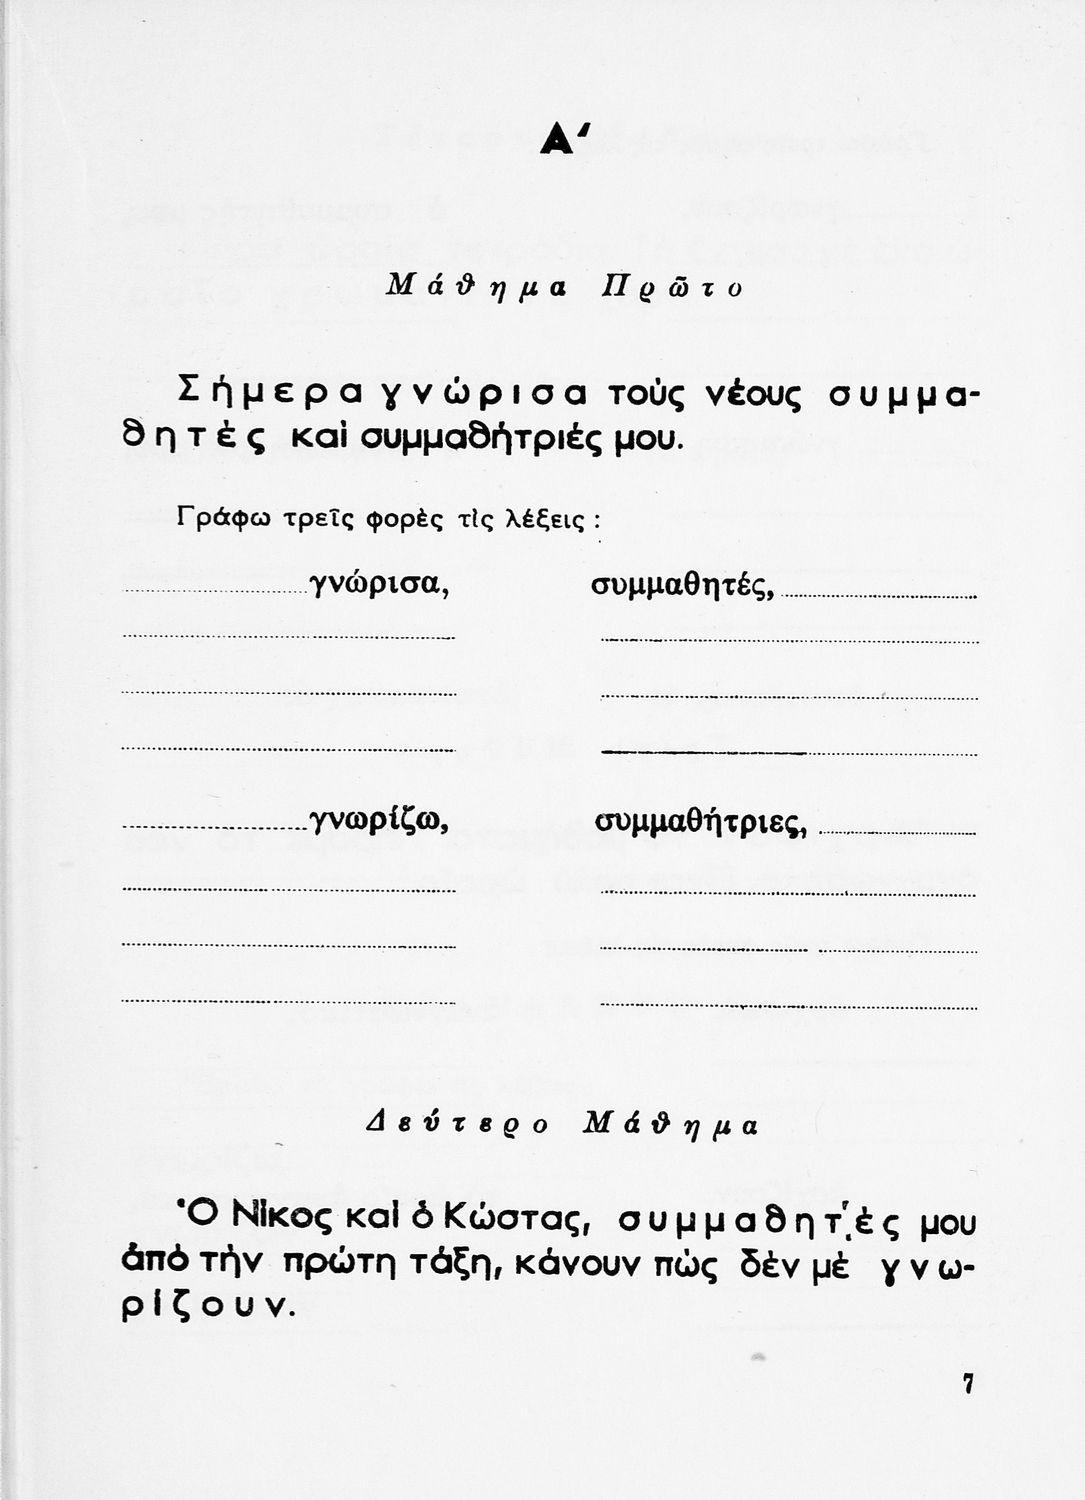 Α'
Μάθημα Πρῶτο
Σήμερα γνώρισα τούς νέους συμμα-
θητές καί συμμαθήτριές μου.
Γράφω τρεῖς φορὲς τὶς λέξεις :
γνώρισα, συμμαθητές,
γνωρίζω, συμμαθήτριες,
Δεύτερο Μάθημα
Ὁ Νίκος καί ὁ Κώστας, συμμαθητές μου
ἀπό τήν πρώτη τάξη, κάνουν πώς δέν μέ γνω-
ρίζουν.
7